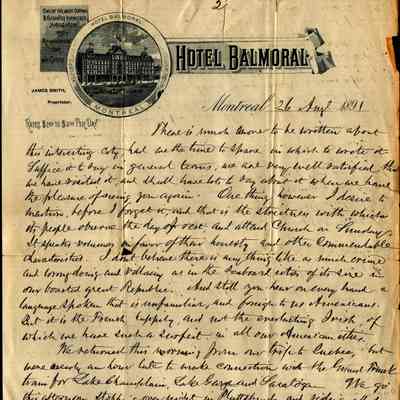 2
HOTEL BALMORAL
MONTREAL
HOTEL BALMORAL
JAMES SMITH,
Proprietor.
Montreal 26 Augt 1891
There is much more to be written about
this interesting City had we the time to spare in which to write it
Suffice it to say in general terms, we are very well satisfied that
we have visited it, and shall have lots to say about it when we have
the pleasure of seeing you again. One thing however I desire to
mention, before I forget it, and that is the strictness with which
its people observe the day of rest, and attend Church on Sunday.
It speaks volumes in favor of their honesty and other commendable
characteristics. I don't believe there is any thing like as much crime
and wrong doing and villainy as in the Seaboard cities of its size in
our boasted great Republic. And still you hear on every hand a
language spoken that is unfamiliar, and foreign to us Americans.
But it is the French, happily, and not the everlasting Irish of
which we have such a surfeit in all our American cities.
We returned this morning from our trip to Quebec, but
were nearly an hour late to make connection with the Grand Trunk
train for Lake Champlain, Lake George and Saratoga. We go
this afternoon, stopping over night in Plattsburgh and